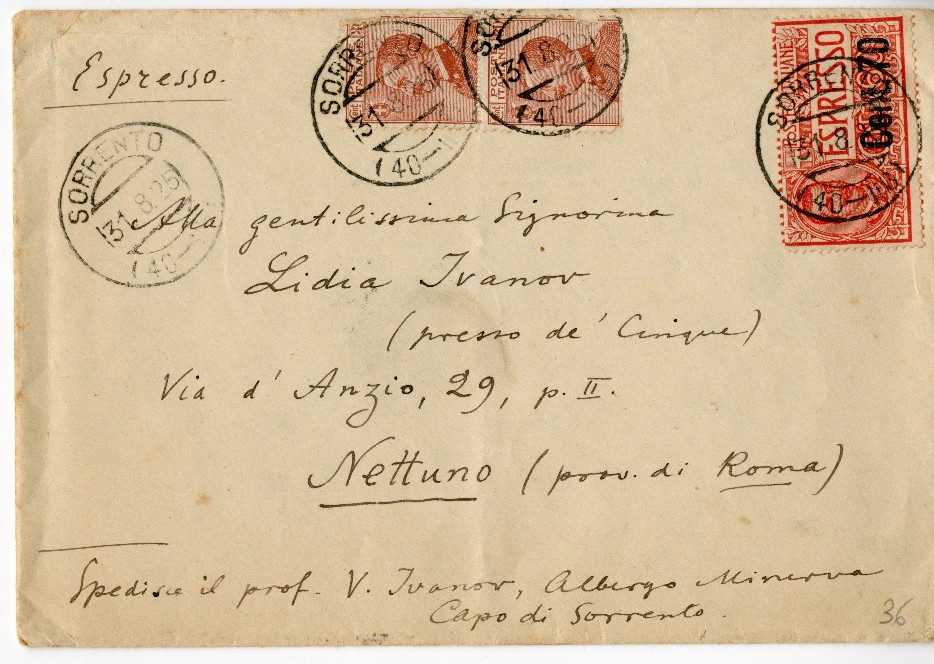 Espresso.
SORRENTO
31.8.25
(40-1)
POSTE ITALIANE
SORRENTO
31.8.25
(40-1)
POSTE ITALIANE
SORRENTO
31.8.25
(40-
POSTE ITALIANE
ESPRESSO
Cent. 70
SORRENTO
31.8.
(40-
Alla gentilissima Signorina
Lidia Ivanov
(presso de' Cinque)
Via d' Anzio, 29, p. II.
Nettuno (prov. di Roma)
Spedisce il prof. V. Ivanov, Albergo Minerva
Capo di Sorrento.
36